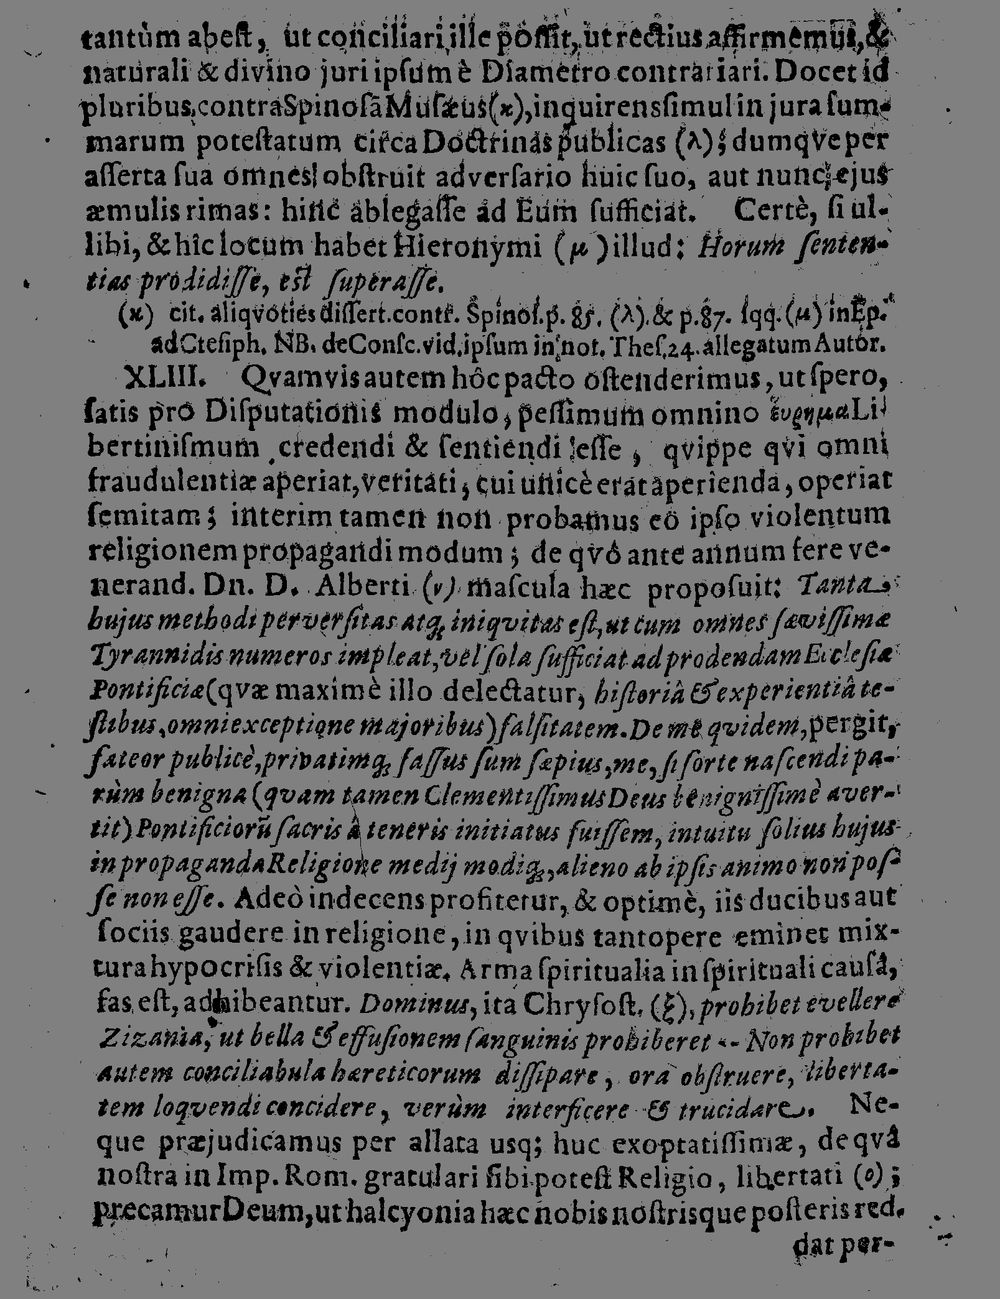 tantùm abeſt, ut conciliari ille poſſit, ut rectius affirmemus, &
naturali & divino juri ipſum è Diametro contrariari. Docet id
pluribus contra Spinoſã Muſæus (ϰ), inquirens ſimul in jura ſum-
marum poteſtatum circa Doctrinas publicas (λ); dumqve per
aſſerta ſua omnes obſtruit adverſario huic ſuo, aut nunc ejus
æmulis rimas: hinc ablegaſſe ad Eum ſufficiat. Certè, ſi ul-
libi, & hîc locum habet Hieronymi (μ) illud: Horum ſenten-
tias prodidiſſe, eſt ſuperaſſe.
(ϰ) cit. aliqvoties diſſert. contr. Spinoſ. p. 85. (λ) & p. 87. ſqq. (μ) in Ep.
ad Cteſiph. NB. de Conſc. vid. ipſum in not. Theſ. 24. allegatum Autor.
XLIII. Qvamvis autem hôc pacto oſtenderimus, ut ſpero,
ſatis pro Diſputationis modulo, peſſimum omnino εὕρημα Li-
bertiniſmum credendi & ſentiendi eſſe, qvippe qvi omni
fraudulentiæ aperiat, veritati, cui unicè erat aperienda, operiat
ſemitam; interim tamen non probamus eô ipſo violentum
religionem propagandi modum; de qvô ante annum fere ve-
nerand. Dn. D. Alberti (ν) maſcula hæc propoſuit: Tanta
hujus methodi perverſitas atq; iniqvitas eſt, ut cum omnes ſæviſſimæ
Tyrannidis numeros impleat, vel ſola ſufficiat ad prodendam Eccleſiæ
Pontificiæ (qvæ maximè illo delectatur, hiſtoriâ & experientiâ te-
ſtibus, omni exceptione majoribus) falſitatem. De me qvidem, pergit,
fateor publicè, privatimq; faſſus ſum ſæpius, me, ſi forte naſcendi pa-
rùm benigna (quam tamen Clementiſſimus Deus benigniſſimè aver-
tit) Pontificiorũ ſacris à teneris initiatus fuiſſem, intuitu ſolius hujus
in propaganda Religione medij modiq;, alieno ab ipſis animo non poſ-
ſe non eſſe. Adeò indecens profitetur, & optimè, iis ducibus aut
ſociis gaudere in religione, in qvibus tantopere eminet mix-
tura hypocriſis & violentiæ. Arma ſpiritualia in ſpirituali cauſâ,
fas eſt, adhibeantur. Dominus, ita Chryſoſt. (ξ), prohibet evellere
Zizania, ut bella & effuſionem ſanguinis prohiberet -- Non prohibet
autem conciliabula hæreticorum diſſipare, ora obſtruere, liberta-
tem loqvendi concidere, verùm interficere & trucidare. Ne-
que præjudicamus per allata usq; huc exoptatiſſimæ, de qvâ
noſtra in Imp. Rom. gratulari ſibi poteſt Religio, libertati (ο);
precamur Deum, ut halcyonia hæc nobis noſtrisque poſteris red-
dat per-